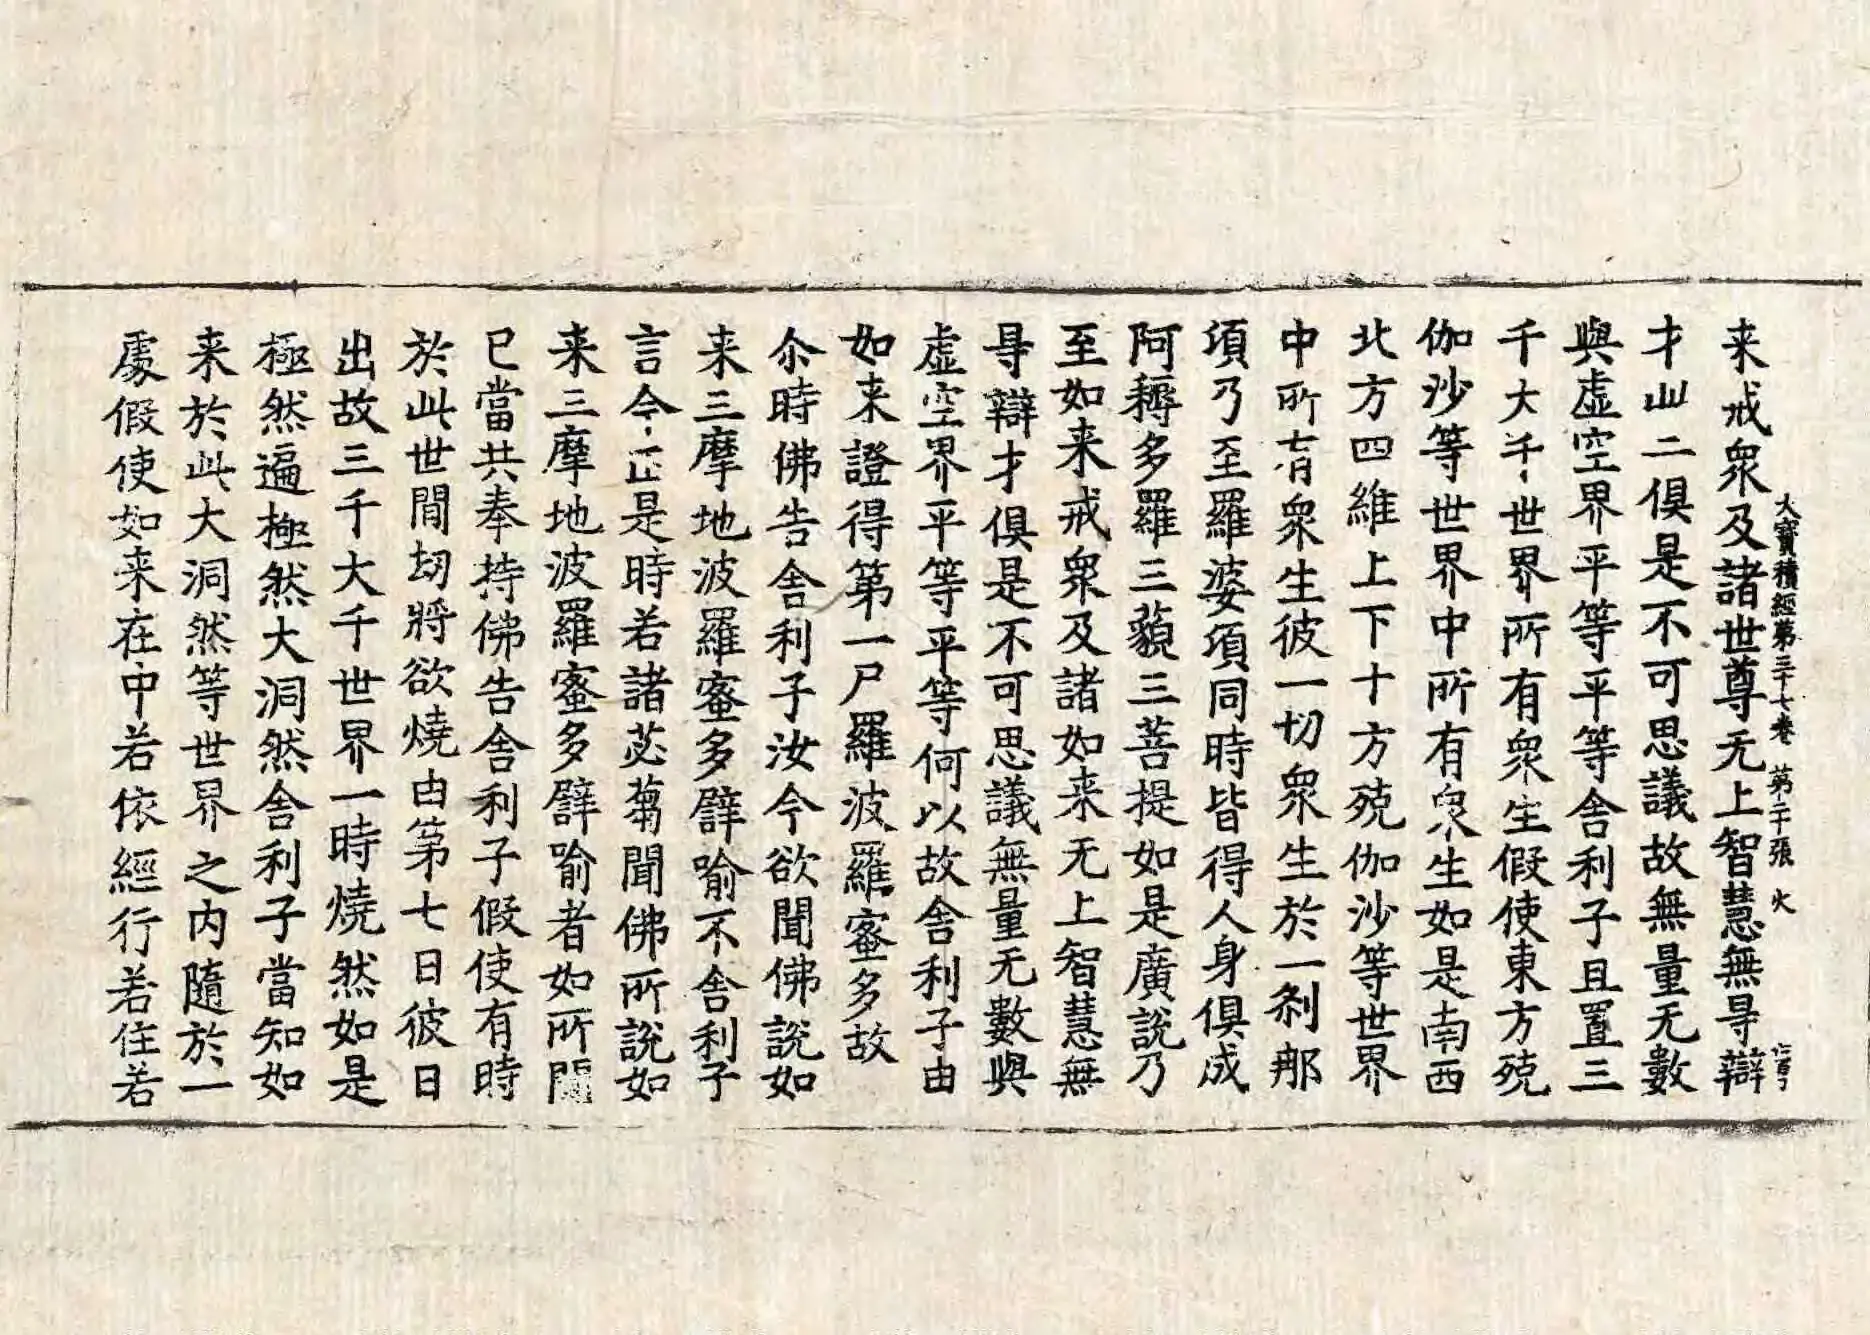 大寶積經第三十七卷 第二十張 火
来戒衆及諸世尊无上智慧無㝵辯
才此二俱是不可思議故無量无數
與虛空界平等平等舍利子且置三
千大千世界所有衆生假使東方殑
伽沙等世界中所有衆生如是南西
北方四維上下十方殑伽沙等世界
中所有衆生彼一切衆生於一刹那
頃乃至羅婆頃同時皆得人身俱成
阿耨多羅三藐三菩提如是廣說乃
至如来戒衆及諸如来无上智慧無
㝵辯才俱是不可思議無量无數與
虛空界平等平等何以故舍利子由
如来證得第一尸羅波羅蜜多故
尒時佛告舍利子汝今欲聞佛說如
来三摩地波羅蜜多譬喻不舍利子
言今正是時若諸苾芻聞佛所說如
来三摩地波羅蜜多譬喻者如所聞
已當共奉持佛告舍利子假使有時
於此世間劫將欲燒由第七日彼日
出故三千大千世界一時燒然如是
極然遍極然大洞然舍利子當知如
来於此大洞然等世界之内隨於一
處假使如来在中若依經行若住若